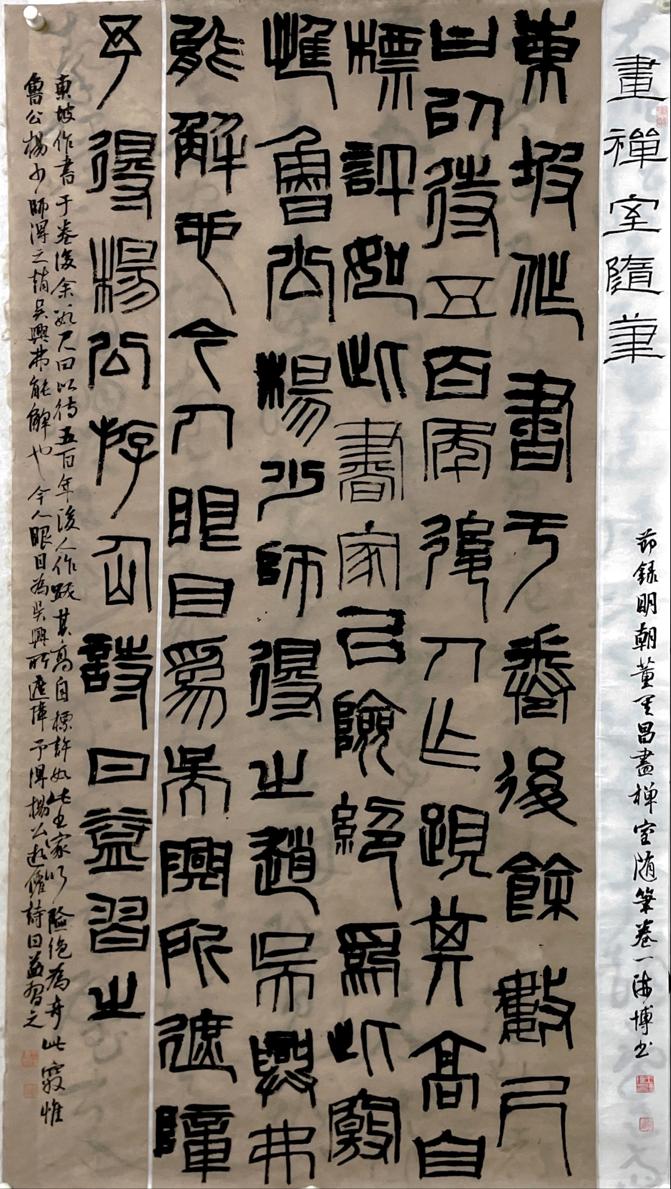 畫禪室隨筆
节錄明朝董其昌畫禅室随筆卷一海博书
東坡作書于卷後餘數尺
曰以待五百年後人作跋其高自
標評如此書家以險絕爲此竅
惟魯公楊少師得之趙吳興弗
能解也今人眼目爲吳興所遮障
予得楊公游仙詩日益習之
東坡作書于卷後余數尺曰以待五百年後人作跋其高自標許如此書家以險絕為奇此竅惟
魯公楊少師得之趙吳興弗能解也今人眼目為吳興所遮障予得楊公游仙詩日益習之